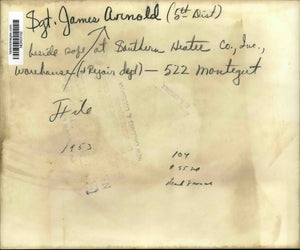 Sgt. James Arnold (5th Dist)
beside safe at Southern Heater Co., Inc.,
Warehouse (& Repair dept) — 522 Montegut
File
1953
104